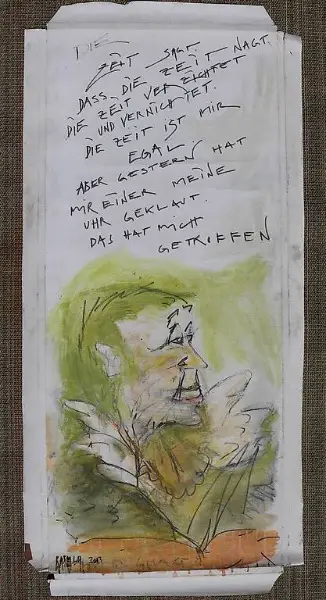 DIE
ZEIT SAGT.
DASS DIE ZEIT NAGT.
DIE ZEIT VERZICHTET
UND VERNICHTET.
DIE ZEIT IST MIR
EGAL
ABER GESTERN HAT
MIR EINER MEINE
UHR GEKLAUT.
DAS HAT MICH
GETROFFEN
2013